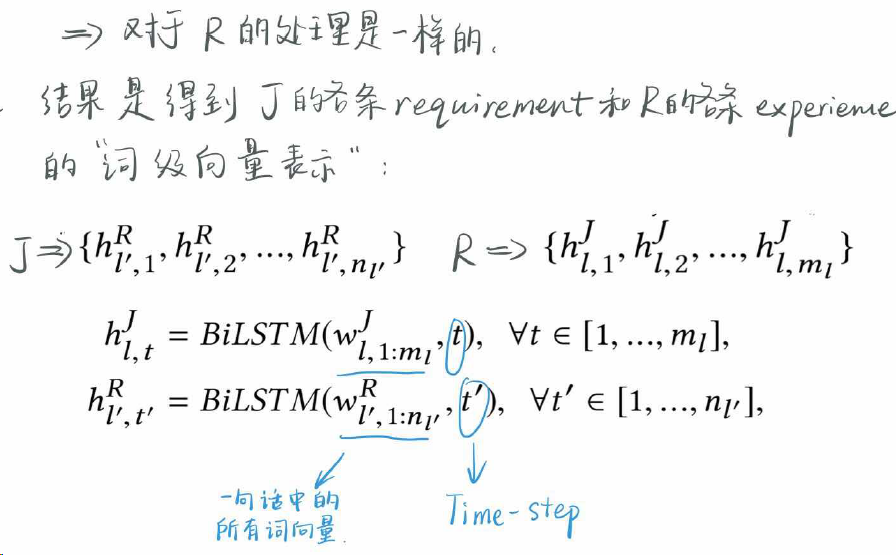 => 对于 R 的处理是一样的.
结果是得到 J的各条requirement和R的各条 experieme
的“词级向量表示”:
J=> {h^R_{l',1}, h^R_{l',2}, ..., h^R_{l',n_{l'}}} R => {h^J_{l,1}, h^J_{l,2}, ..., h^J_{l,m_l}}
h^J_{l,t} = BiLSTM(w^J_{l,1:m_l}, t), ∀t ∈ [1, ..., m_l],
h^R_{l',t'} = BiLSTM(w^R_{l',1:n_{l'}}, t'), ∀t' ∈ [1, ..., n_{l'}],
一句话中的
所有词向量.
Time-step